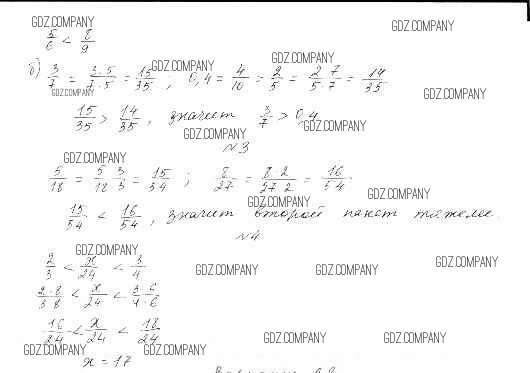 GDZ.COMPANY GDZ.COMPANY
5/6 < 8/9
GDZ.COMPANY GDZ.COMPANY
б) 3/7 = 3·5/7·5 = 15/35 ; 0,4 = 4/10 = 2/5 = 2·7/5·7 = 14/35
GDZ.COMPANY GDZ.COMPANY
15/35 > 14/35, значит 3/7 > 0,4
GDZ.COMPANY GDZ.COMPANY
№3
GDZ.COMPANY
5/18 = 5·3/18·3 = 15/54 ; 8/27 = 8·2/27·2 = 16/54.
GDZ.COMPANY GDZ.COMPANY
15/54 < 16/54, значит второй пакет тяжелее.
№4
GDZ.COMPANY GDZ.COMPANY GDZ.COMPANY GDZ.COMPANY
2/3 < x/24 < 3/4
2·8/3·8 < x/24 < 3·6/4·6
16/24 < x/24 < 18/24
GDZ.COMPANY GDZ.COMPANY GDZ.COMPANY GDZ.COMPANY
x = 17